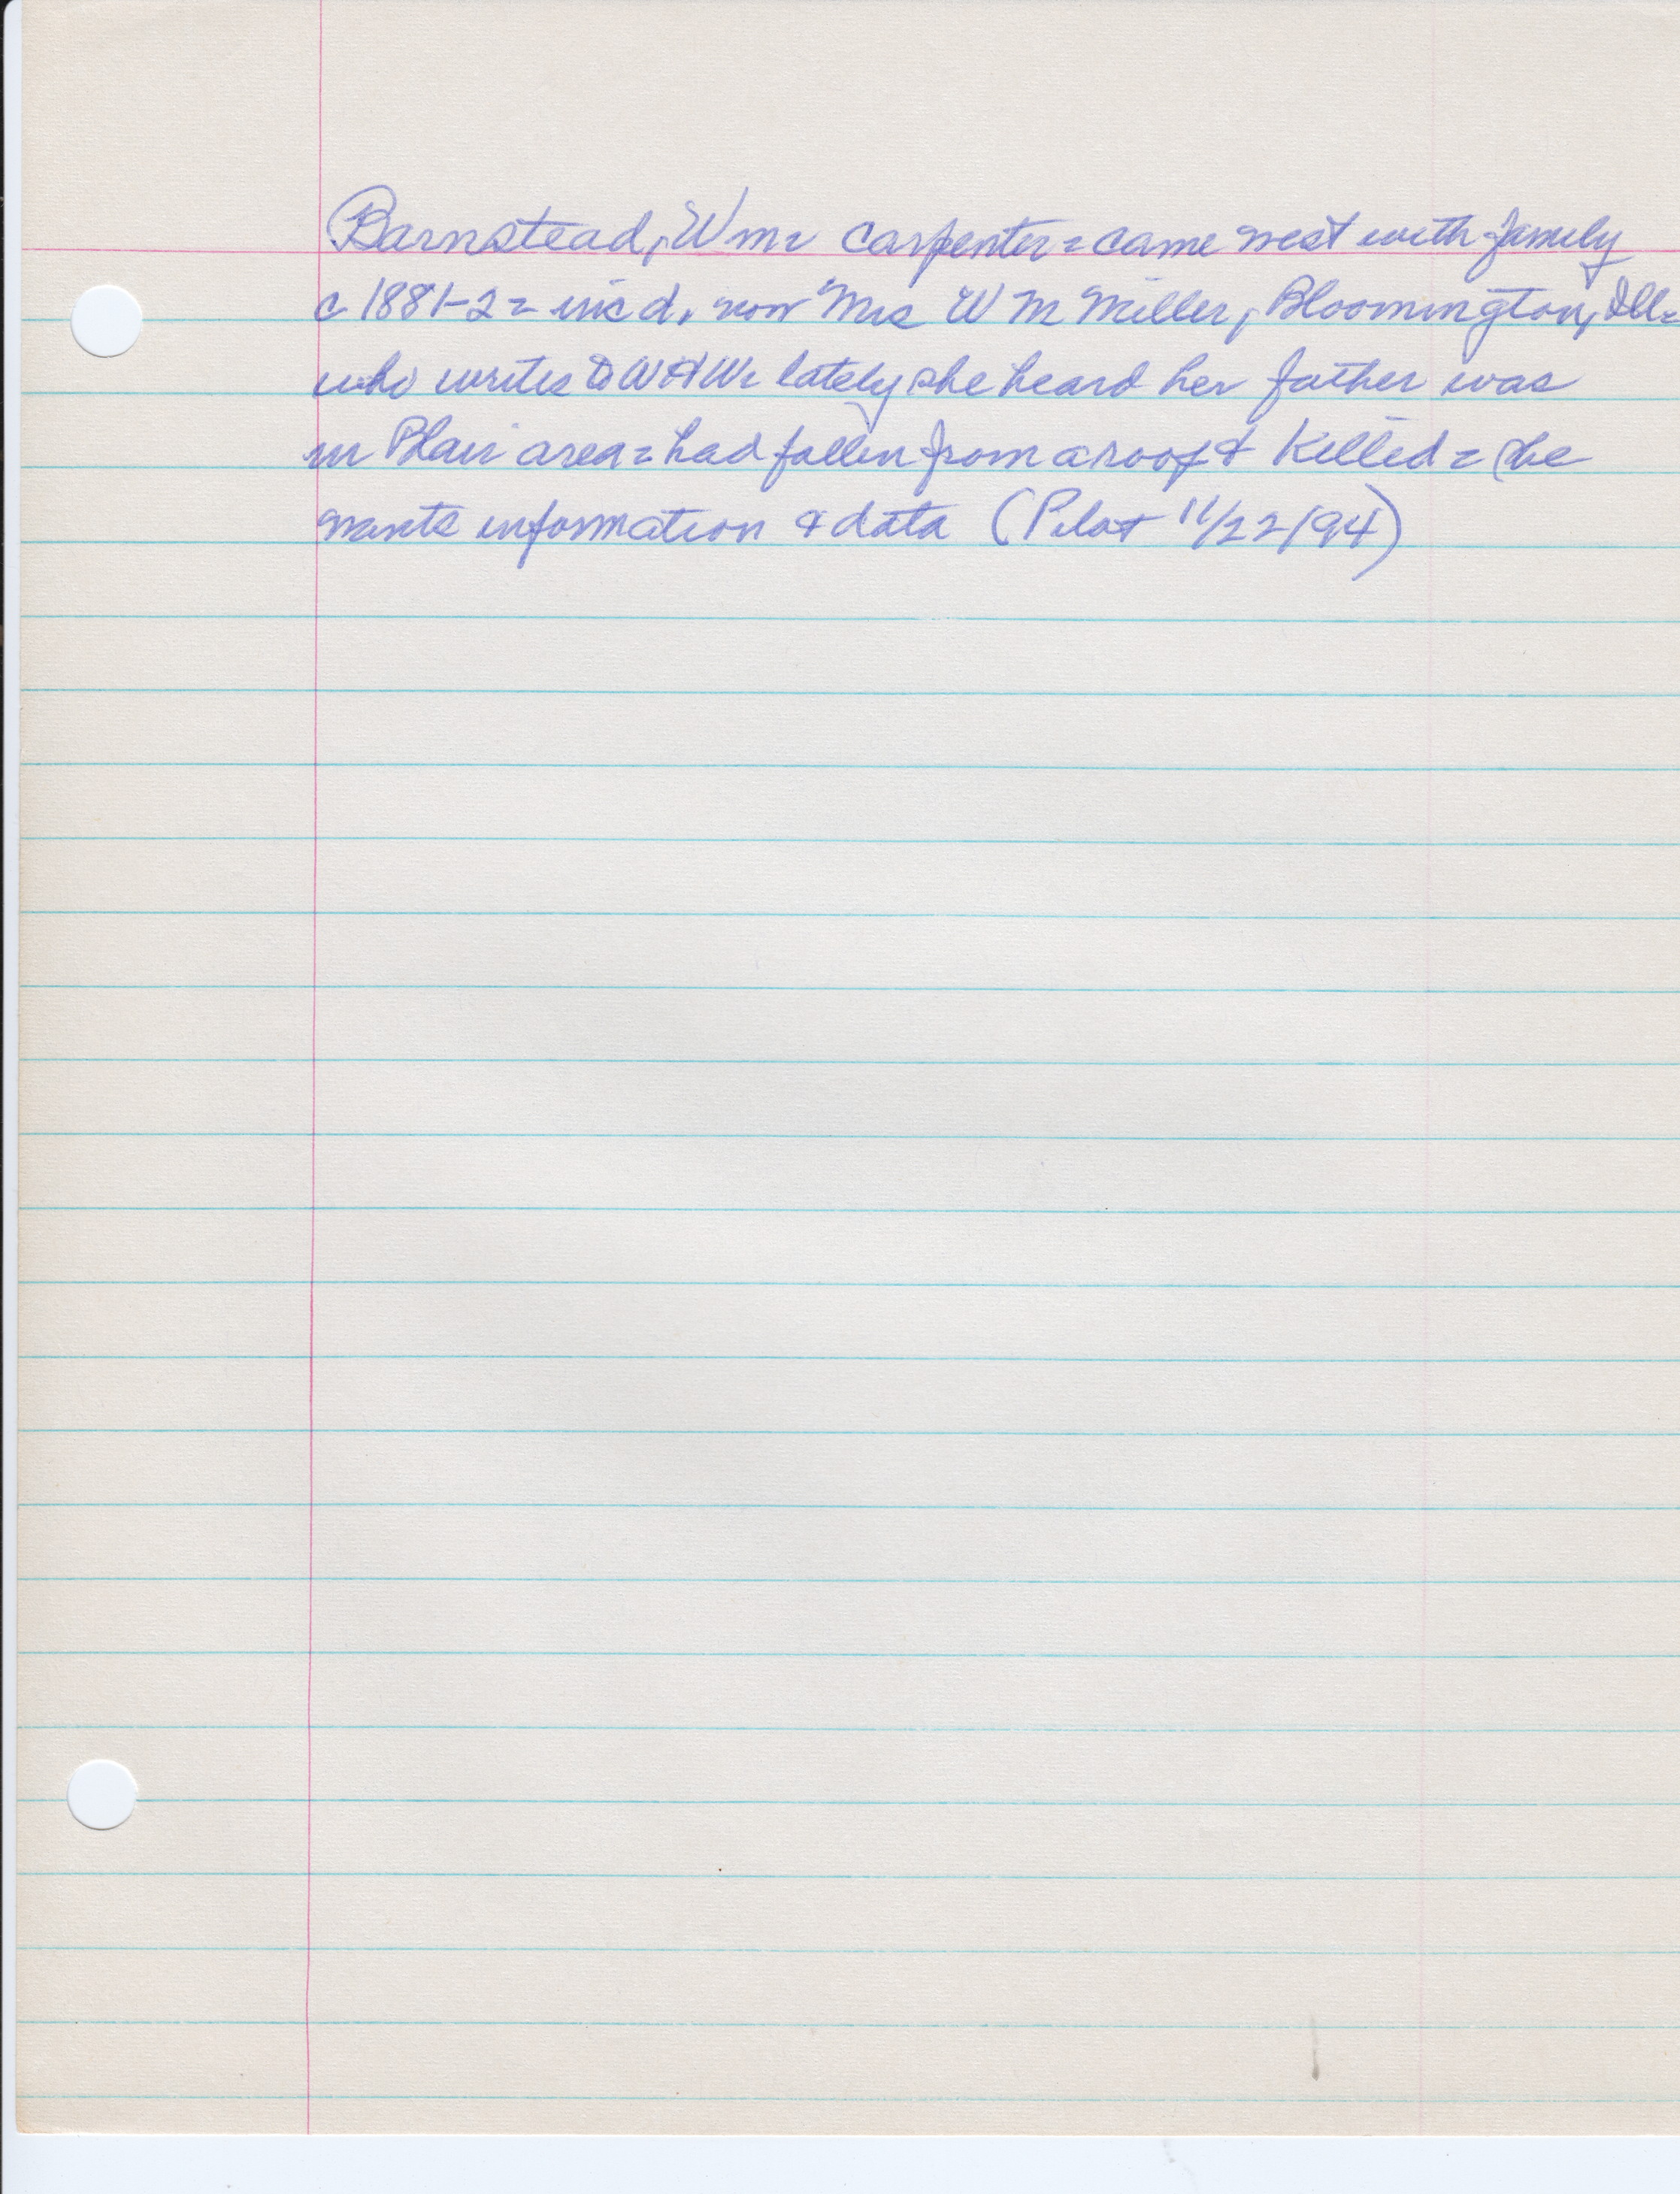 Barnstead, Wm = carpenter = came west with family
c 1881-2 = inc d. now Mrs W M Miller, Bloomington, Ill =
who writes to W H W = lately she heard her father was
in Blair area = had fallen from a roof & killed = she
wants information & data (Pilot 11/22/94)